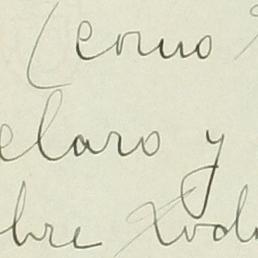 (como
claro y
bre todo